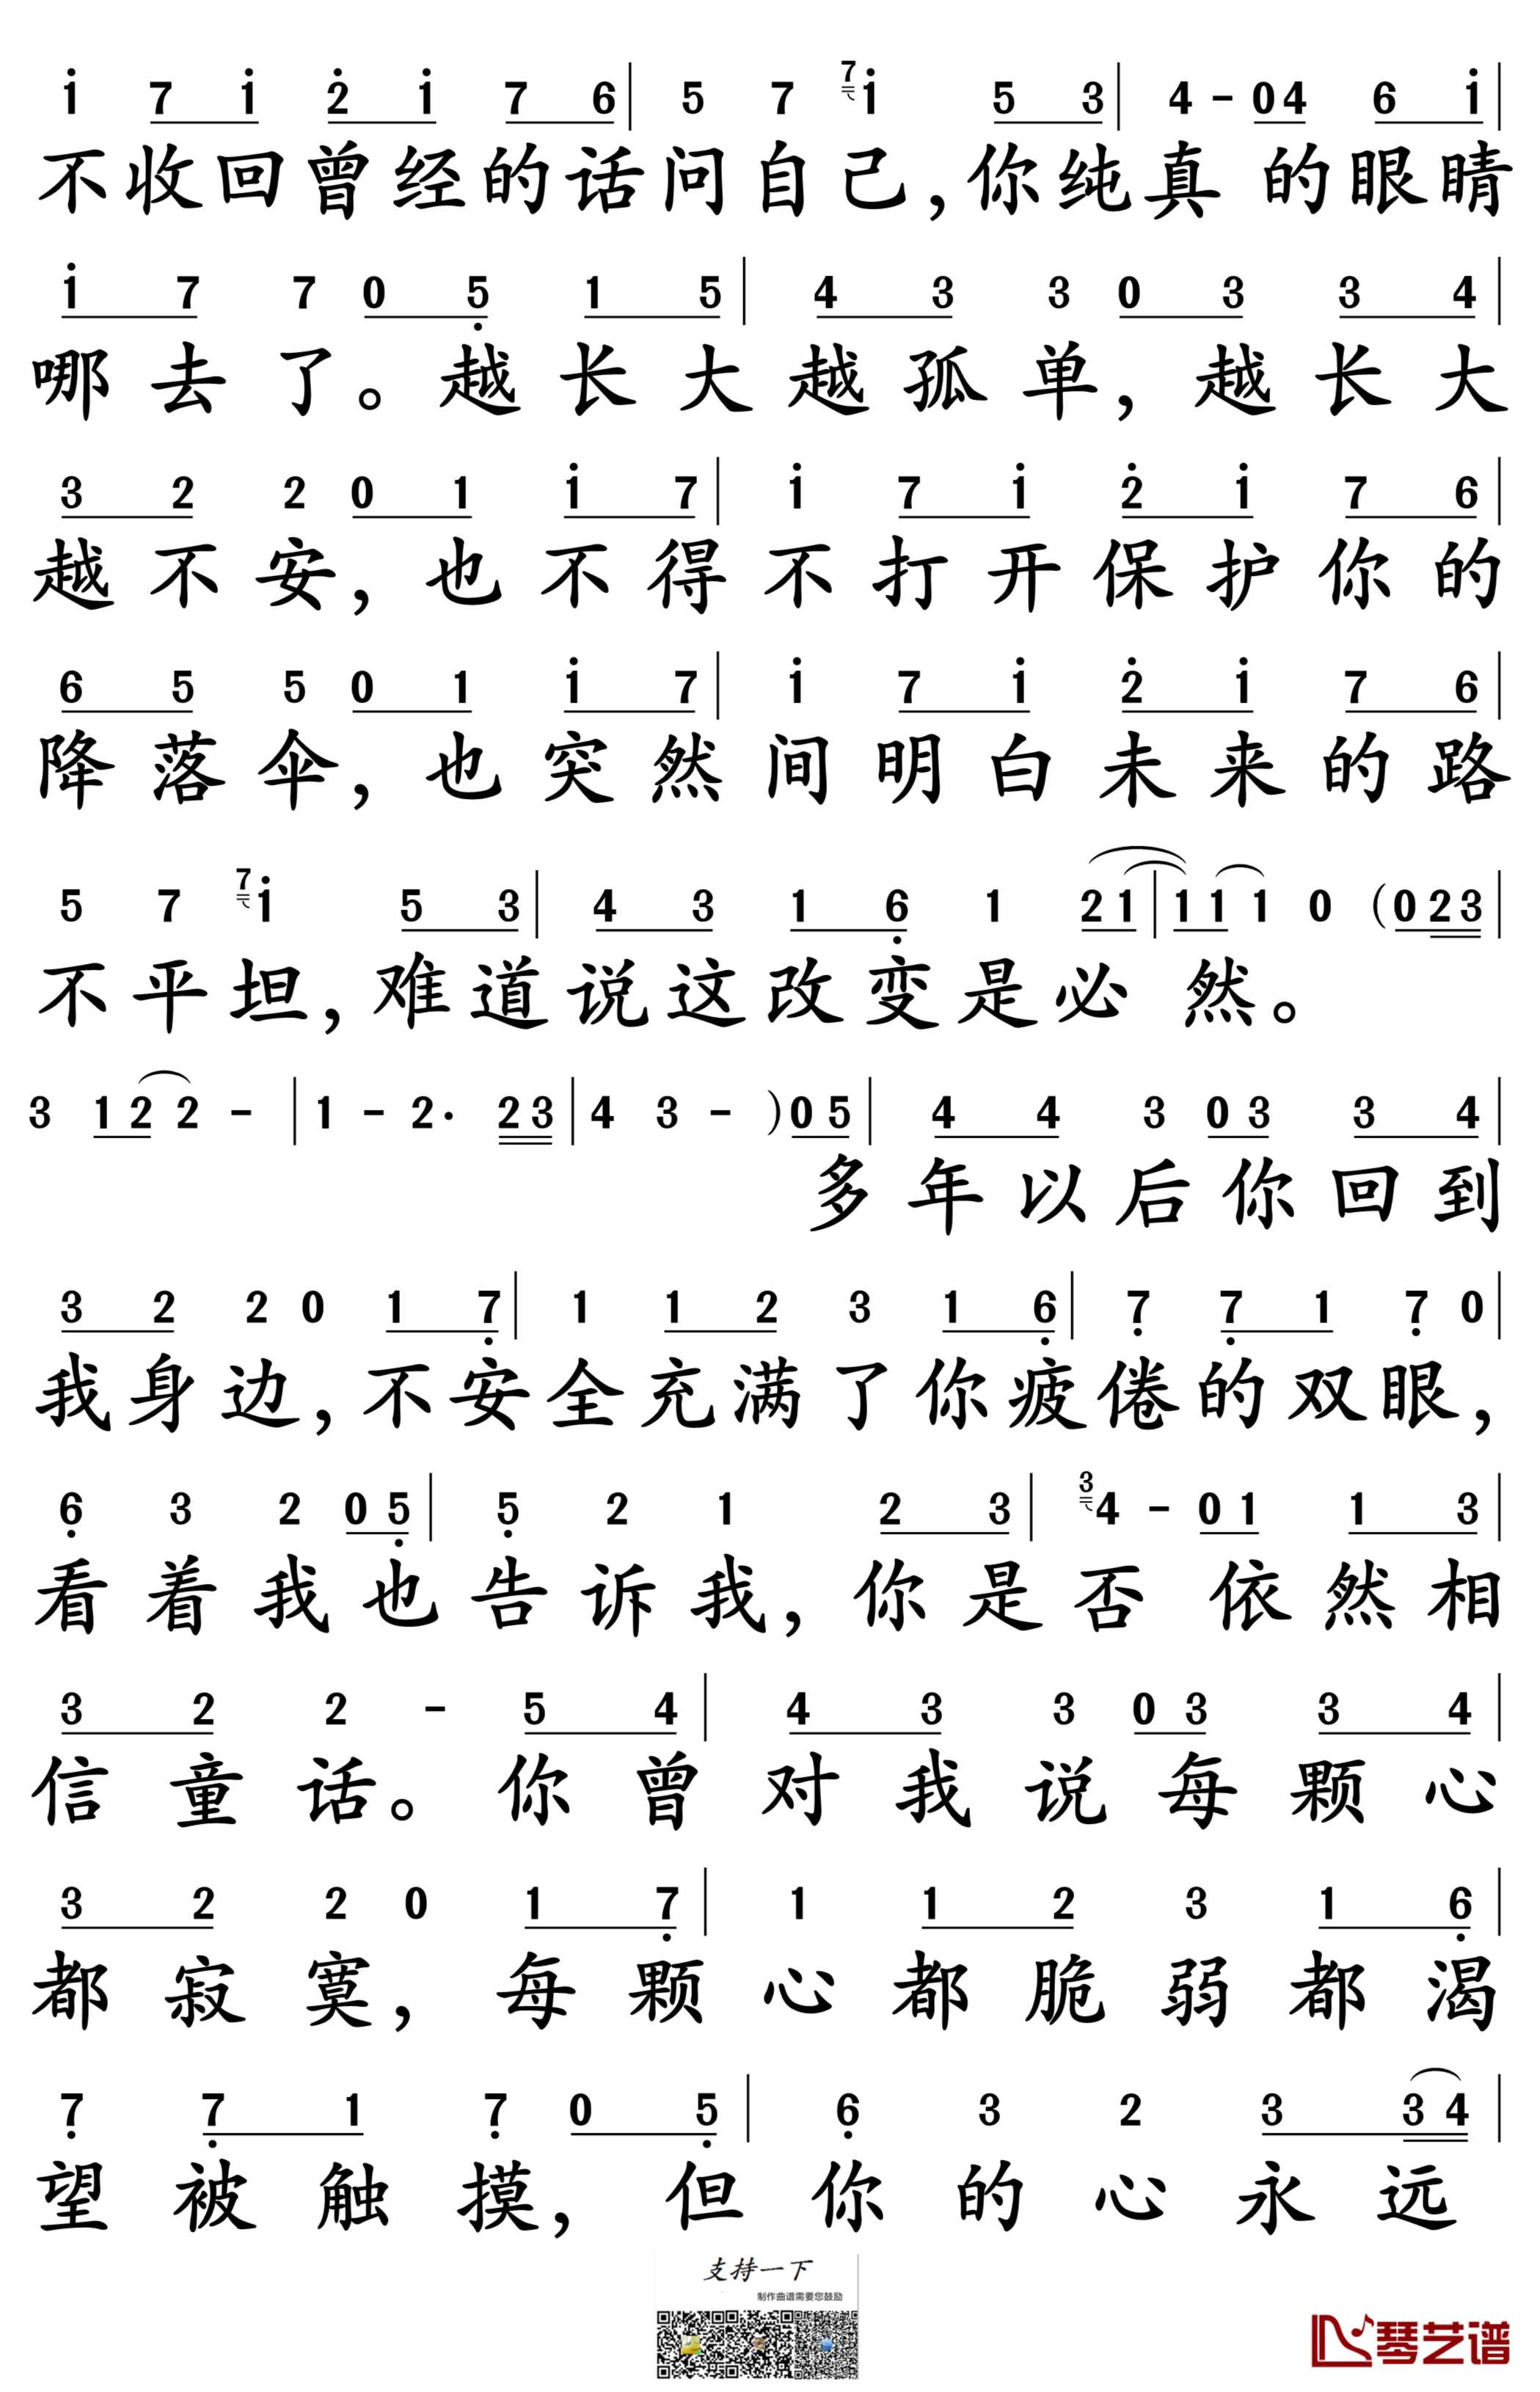 i 7 i 2 i 7 6 | 5 7 7i 5 3 | 4 - 0 4 6 i |
不收回曾经的话问自己，你纯真 的眼睛
i 7 7 0 5 1 5 | 4 3 3 0 3 3 4 |
哪去了。越长大越孤单，越长大
3 2 2 0 1 i 7 | i 7 i 2 i 7 6 |
越不安，也不得不打开保护你的
6 5 5 0 1 i 7 | i 7 i 2 i 7 6 |
降落伞，也突然间明白未来的路
5 7 7i 5 3 | 4 3 1 6 1 2 1 | 1 1 1 0 (0 2 3 |
不平坦，难道说这改变是必 然。
3 1 2 2 - | 1 - 2· 2 3 | 4 3 - ) 0 5 | 4 4 3 0 3 3 4 |
多年以后你回到
3 2 2 0 1 7 | 1 1 2 3 1 6 | 7 7 1 7 0 |
我身边，不安全充满了你疲倦的双眼，
6 3 2 0 5 | 5 2 1 2 3 | 34 - 0 1 1 3 |
看着我也告诉我，你是否 依然相
3 2 2 - 5 4 | 4 3 3 0 3 3 4 |
信童话。你曾对我说每颗心
3 2 2 0 1 7 | 1 1 2 3 1 6 |
都寂寞，每颗心都脆弱都渴
7 7 1 7 0 5 | 6 3 2 3 3 4 |
望被触摸，但你的心永远
支持一下
制作曲谱需要您鼓励
琴艺谱